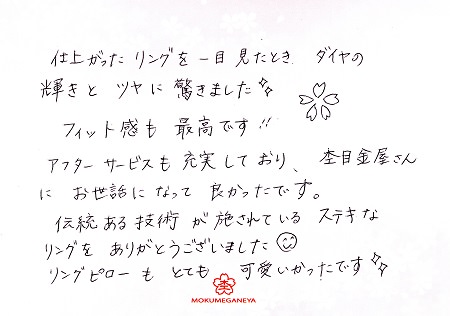 仕上がったリングを一目見たとき ダイヤの
輝きと ツヤに 驚きました
フィット感も 最高です!!
アフターサービスも 充実しており、杢目金屋さん
に お世話になって 良かったです。
伝統ある技術が 施されている ステキな
リングを ありがとうございました
リングピローも とても 可愛いかったです
杢
MOKUMEGANEYA